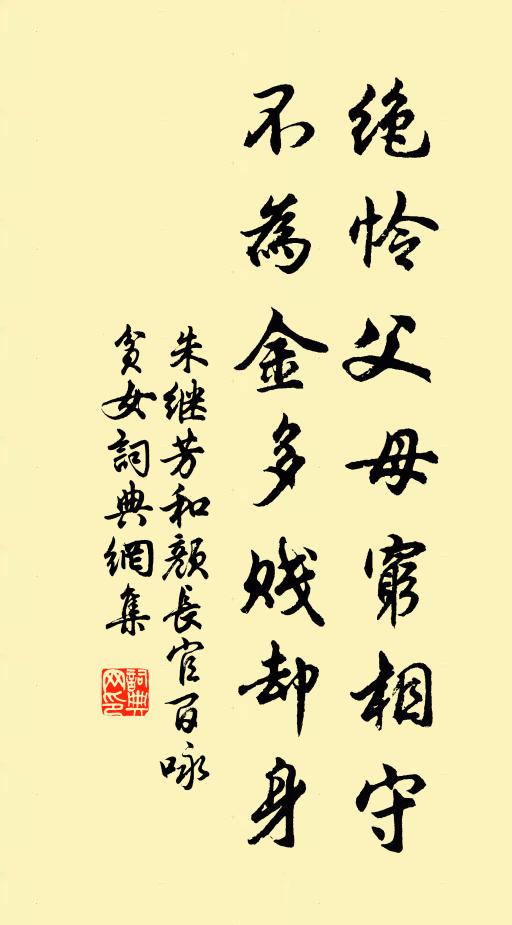 绝怜父母穷相守
不為金多贱却身
朱继芳和颜长官百咏
贫女詞典網集
詞典
网印